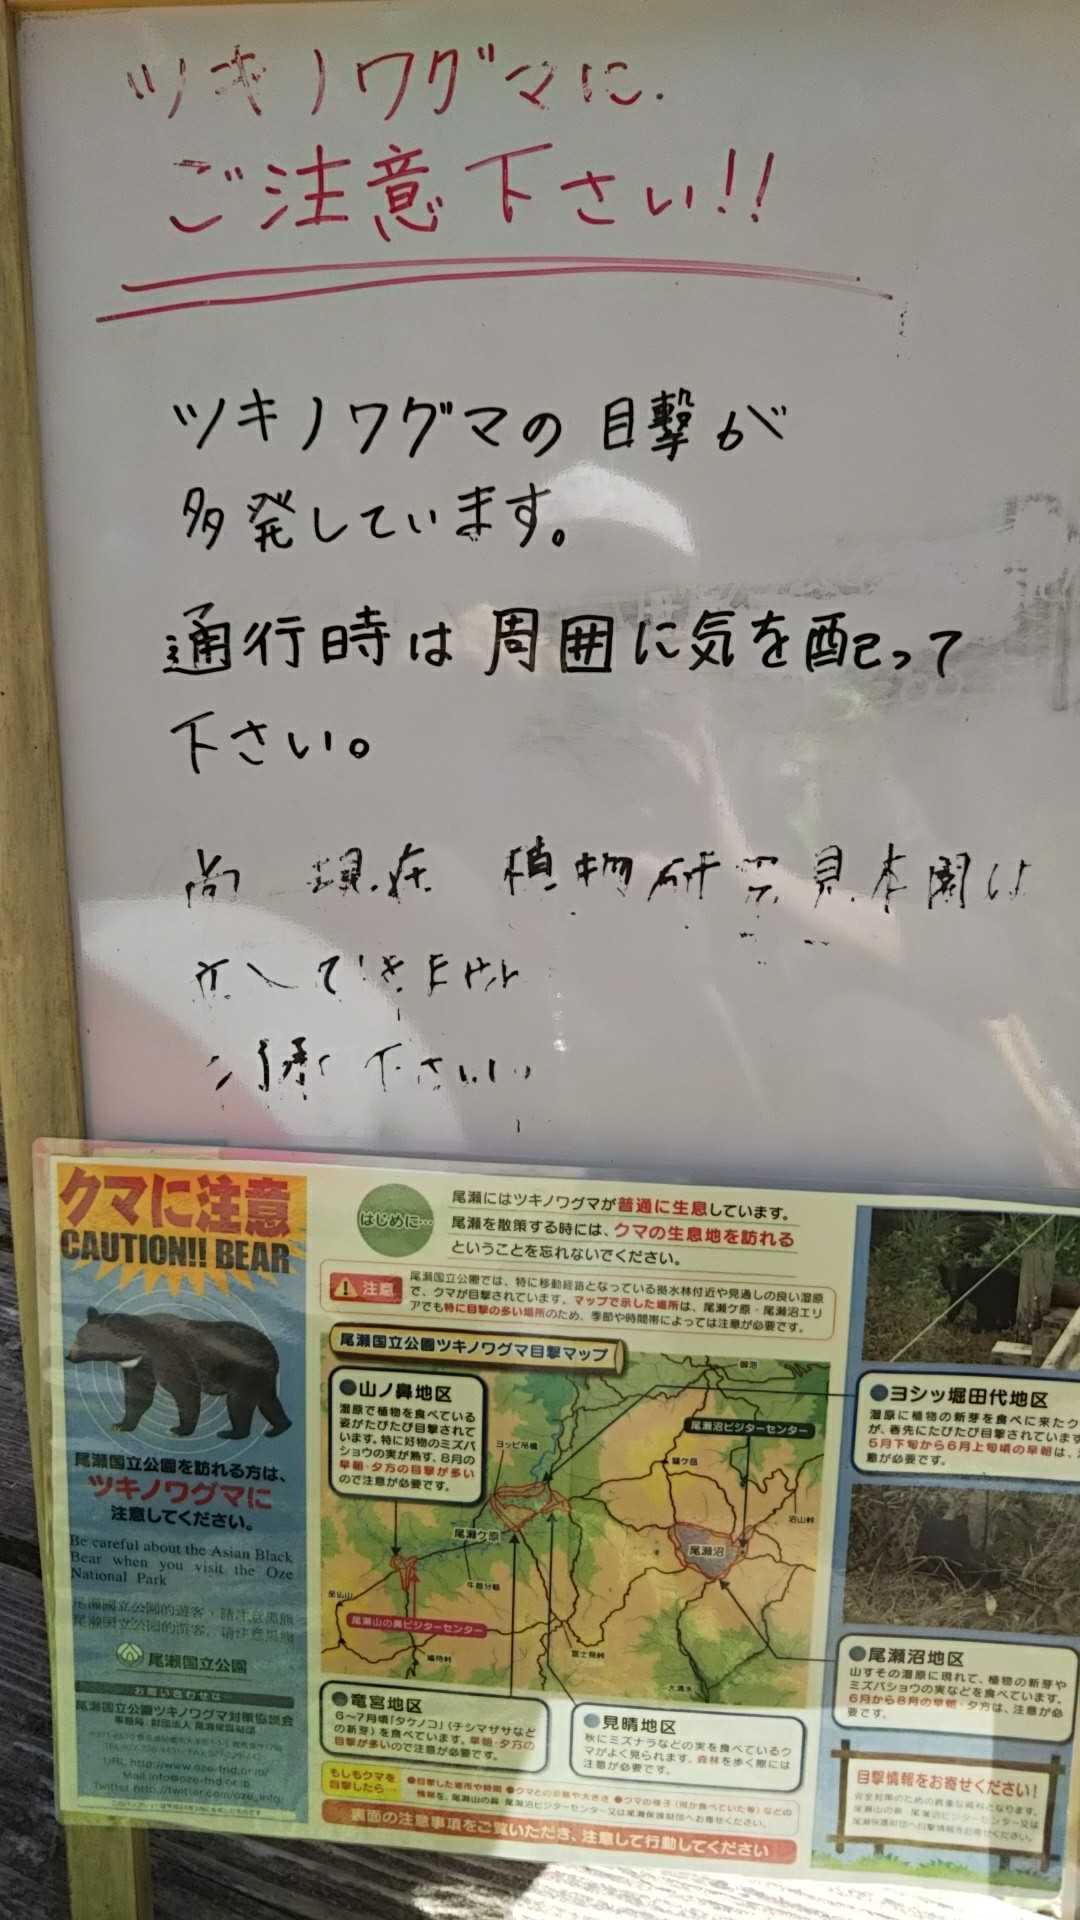 ツキノワグマに
ご注意下さい!!
ツキノワグマの目撃が
多発しています。
通行時は周囲に気を配って
下さい。
尚 現在 植物研究見本園は
下さい
クマに注意
CAUTION!! BEAR
尾瀬国立公園を訪れる方は、
ツキノワグマに
注意してください。
Be careful about the Asian Black
Bear when you visit the Oze
National Park
尾瀬国立公園
お問い合わせは…
尾瀬国立公園ツキノワグマ対策協議会
URL http://www.oze-fnd.or.jp/
Mail info@oze-fnd.or.jp
Twitter http://twitter.com/oze_info/
はじめに…
尾瀬にはツキノワグマが普通に生息しています。
尾瀬を散策する時には、クマの生息地を訪れる
ということを忘れないでください。
注意
尾瀬国立公園では、特に移動経路となっている拠水林付近や見通しの良い湿原
で、クマが目撃されています。マップで示した場所は、尾瀬ケ原・尾瀬沼エリ
アでも特に目撃の多い場所のため、季節や時間帯によっては注意が必要です。
尾瀬国立公園ツキノワグマ目撃マップ
山ノ鼻地区
湿原で植物を食べている
姿がたびたび目撃されて
います。特に好物のミズバ
ショウの実が熟す、8月の
早朝・夕方の目撃が多い
ので注意が必要です。
御池
ヨッピ吊橋
尾瀬沼ビジターセンター
燧ケ岳
沼山峠
尾瀬ケ原
尾瀬沼
牛首分岐
至仏山
尾瀬山の鼻ビジターセンター
鳩待峠
富士見峠
大清水
ヨシッ堀田代地区
湿原に植物の新芽を食べに来たク
が、春先にたびたび目撃されています
5月下旬から6月上旬頃の早朝は、
意が必要です。
尾瀬沼地区
山すその湿原に現れて、植物の新芽や
ミズバショウの実などを食べています。
6月から8月の早朝・夕方は、注意が必
要です。
竜宮地区
6〜7月頃「タケノコ」(チシマザサなど
の新芽)を食べています。早朝・夕方の
目撃が多いので注意が必要です。
見晴地区
秋にミズナラなどの実を食べているク
マがよく見られます。森林を歩く際には
注意が必要です。
もしもクマを
目撃したら…
●目撃した場所や時間 ●クマとの距離や大きさ ●クマの様子(何か食べていた等)などの
情報を、尾瀬山の鼻・尾瀬沼ビジターセンター又は尾瀬保護財団へお寄せください。
裏面の注意事項をご覧いただき、注意して行動してください
目撃情報をお寄せください!
安全対策のための貴重な資料となります。
尾瀬山の鼻・尾瀬沼ビジターセンター又は
尾瀬保護財団へ目撃情報をお寄せください。